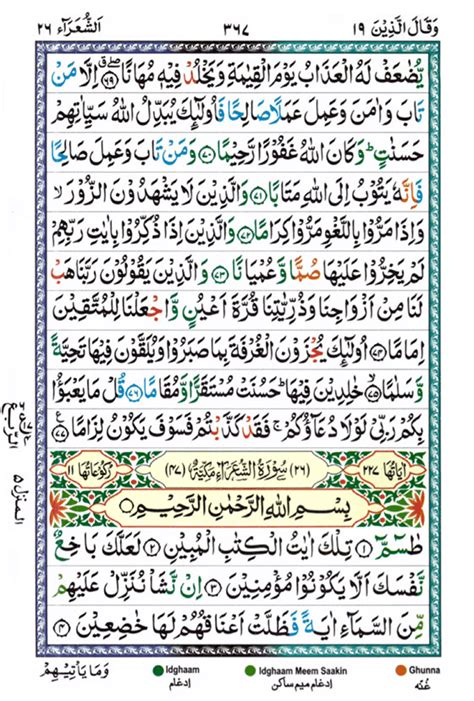 وَقَالَ الَّذِيْنَ ١٩ ٣٦٧ اَلشُّعَرَآء ٢٦
يُّضٰعَفْ لَهُ الْعَذَابُ يَوْمَ الْقِيٰمَةِ وَيَخْلُدْ فِيْهٖ مُهَانًا ﴿٦٩﴾ اِلَّا مَنْ
تَابَ وَاٰمَنَ وَعَمِلَ عَمَلًا صَالِحًا فَاُولٰٓئِكَ يُبَدِّلُ اللّٰهُ سَيِّاٰتِهِمْ
حَسَنٰتٍ ؕ وَكَانَ اللّٰهُ غَفُوْرًا رَّحِيْمًا ﴿٧٠﴾ وَمَنْ تَابَ وَعَمِلَ صَالِحًا
فَاِنَّهٗ يَتُوْبُ اِلَى اللّٰهِ مَتَابًا ﴿٧١﴾ وَالَّذِيْنَ لَا يَشْهَدُوْنَ الزُّوْرَ ۙ
وَاِذَا مَرُّوْا بِاللَّغْوِ مَرُّوْا كِرَامًا ﴿٧٢﴾ وَالَّذِيْنَ اِذَا ذُكِّرُوْا بِاٰيٰتِ رَبِّهِمْ
لَمْ يَخِرُّوْا عَلَيْهَا صُمًّا وَّعُمْيَانًا ﴿٧٣﴾ وَالَّذِيْنَ يَقُوْلُوْنَ رَبَّنَا هَبْ
لَنَا مِنْ اَزْوَاجِنَا وَذُرِّيّٰتِنَا قُرَّةَ اَعْيُنٍ وَّاجْعَلْنَا لِلْمُتَّقِيْنَ
اِمَامًا ﴿٧٤﴾ اُولٰٓئِكَ يُجْزَوْنَ الْغُرْفَةَ بِمَا صَبَرُوْا وَيُلَقَّوْنَ فِيْهَا تَحِيَّةً
وَّسَلٰمًا ﴿٧٥﴾ خٰلِدِيْنَ فِيْهَا ؕ حَسُنَتْ مُسْتَقَرًّا وَّمُقَامًا ﴿٧٦﴾ قُلْ مَا يَعْبَؤُا
بِكُمْ رَبِّيْ لَوْلَا دُعَآؤُكُمْ ۚ فَقَدْ كَذَّبْتُمْ فَسَوْفَ يَكُوْنُ لِزَامًا ﴿٧٧﴾
اٰيَاتُهَا ٢٢٧ (٢٦) سُوْرَةُ الشُّعَرَآءِ مَكِّيَّةٌ (٤٧) رُكُوْعَاتُهَا ١١
بِسْمِ اللّٰهِ الرَّحْمٰنِ الرَّحِيْمِ
طٰسٓمّٓ ﴿١﴾ تِلْكَ اٰيٰتُ الْكِتٰبِ الْمُبِيْنِ ﴿٢﴾ لَعَلَّكَ بَاخِعٌ
نَّفْسَكَ اَلَّا يَكُوْنُوْا مُؤْمِنِيْنَ ﴿٣﴾ اِنْ نَّشَاْ نُنَزِّلْ عَلَيْهِمْ
مِّنَ السَّمَآءِ اٰيَةً فَظَلَّتْ اَعْنَاقُهُمْ لَهَا خٰضِعِيْنَ ﴿٤﴾
المنزل ٥
وَمَا يَاْتِيْهِمْ
Idghaam
Idghaam Meem Saakin
Ghunna
اِدغام
اِدغام میم ساکن
غُنّه